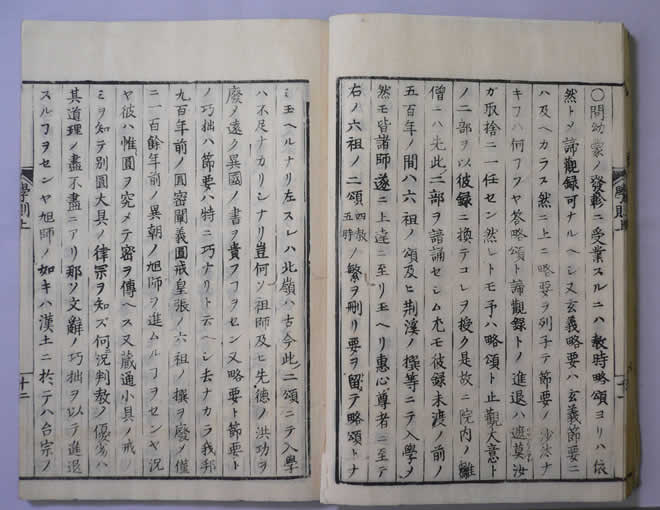 〇問幼家ノ發軫ニ受業スルニハ教時略頌ヨリハ依
然トメ諦觀録可ナルヘシ又玄義略要ハ玄義節要ニ
ハ及ヘカラス然ニ上ニ略要ヲ列子テ節要ノ沙汰ナ
キフハ何フヤ答略頌ト諦觀録トノ進退ハ遮莫汝
ガ取捨ニ一任セン然レトモ予ハ略頌ト止觀大意ト
ノ二部ヲ以彼録ニ換テコレヲ授ク是故ニ院内ノ雛
僧ニハ先此二部ヲ諳誦セシム尤モ彼録未渡ノ前ノ
五百年ノ間ハ六祖ノ頌及ヒ荆溪ノ撰等ニテ入學ヲ
然モ皆諸師遂ニ上達ニ至リ玉ヘリ惠心尊者ニ至テ
右ノ六祖ノ二頌四教五時ノ繁ヲ刪リ要ヲ留テ略頌トナ
ミ玉ヘルナリ左スレハ北嶺ハ古今此二頌ニテ入學
ハ不足ナカリシナリ豈何ソ祖師及ヒ先德ノ洪功ヲ
廢メ遠ク異國ノ書ヲ貴フフヲセン又略要ト節要ト
ノ巧拙ハ節要ハ特ニ巧ナリト云ヘシ去ナカラ我邦
九百年前ノ圓密闡義圓戒皇張ノ六祖ノ撰ヲ廢メ僅
ニ一百餘年前ノ異朝ノ旭師ヲ進ムルフヲセンヤ況
ヤ彼ハ惟圓ヲ究メテ密ヲ傳ヘス又藏通小具ノ戒ノ
ミヲ知テ別圓大具ノ律宗ヲ知ズ何況判教ノ優劣ハ
其道理ノ盡不盡ニアリ那ソ文辭ノ巧拙ヲ以テ進退
スルフヲセンヤ旭師ノ如キハ漢土ニ於テハ台宗ノ
學則上
十二